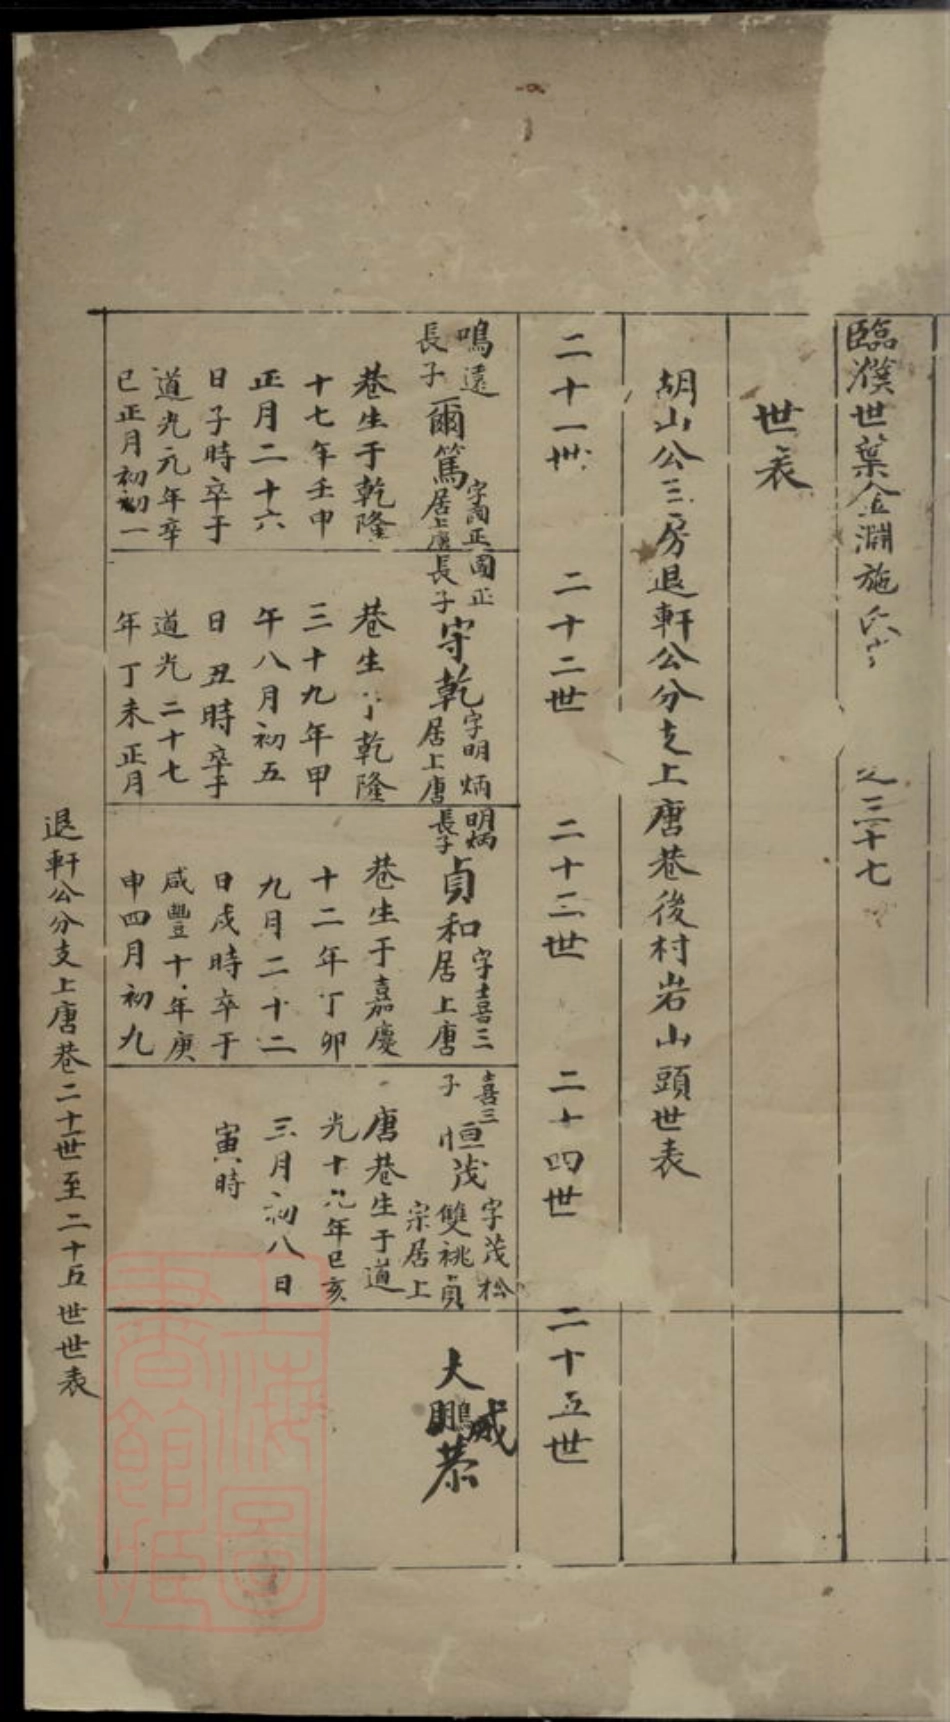 臨濮世葉金淵施氏宗 之三十七
世表
胡山公三房退軒公分支上唐巷後村岩山頭世表
二十一世 二十二世 二十三世 二十四世 二十五世
鳴遠
長子
爾篤
字國正
居上唐
巷生于乾隆
十七年壬申
正月二十六
日子時卒于
道光元年辛
巳正月初初一
國正
長子
守乾
字明炳
居上唐
巷生于乾隆
三十九年甲
午八月初五
日丑時卒于
道光二十七
年丁未正月
明炳
長子
貞和
字喜三
居上唐
巷生于嘉慶
十二年丁卯
九月二十二
日戌時卒于
咸豐十年庚
申四月初九
喜三
子
恒茂
字茂松
雙祧貞
宗居上
唐巷生于道
光十九年己亥
三月初八日
寅時
大鵬恭
威
退軒公分支上唐巷二十一世至二十五世世表
上海圖
書館藏